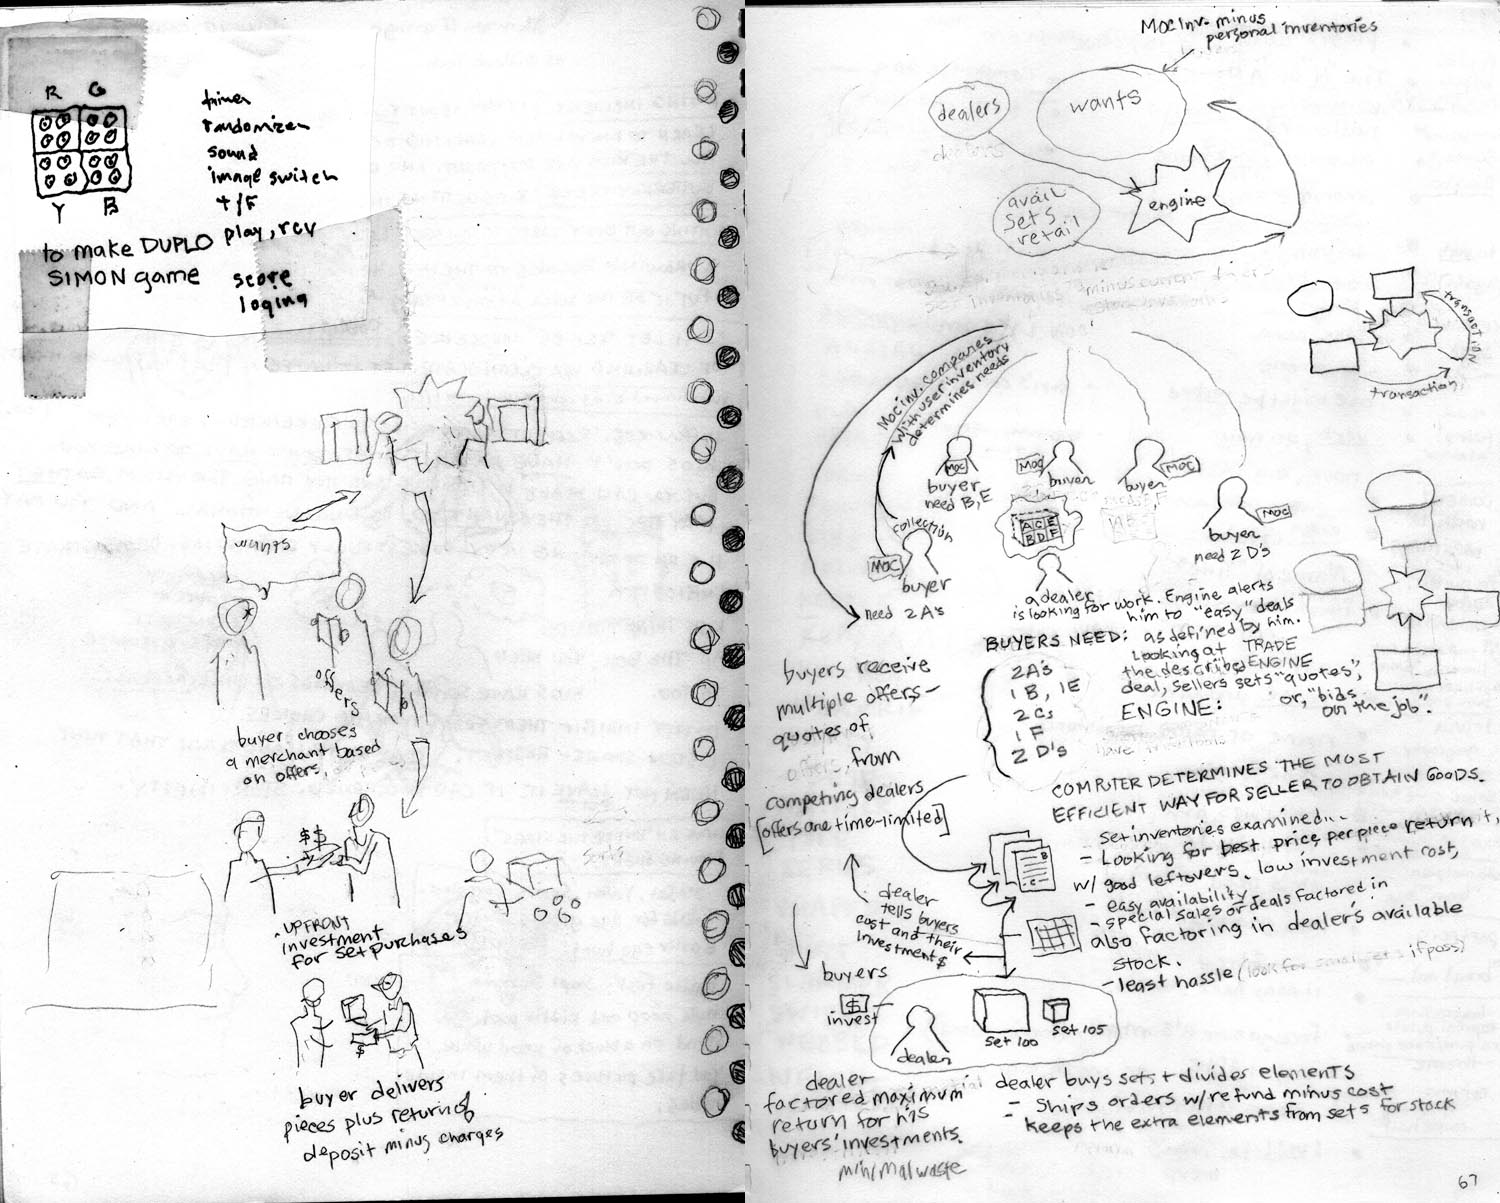 R G
Y B
timer
randomizer
sound
image switch
T/F
play, rcv
score
loging
to make DUPLO
SIMON game
wants
offers
buyer chooses
a merchant based
on offers,
$$
UPFRONT
investment
for set purchases
$
buyer delivers
pieces plus return of
deposit minus charges
MOC Inv. minus
personal inventories
dealers
wants
avail
sets
retail
engine
transaction
transaction
MOC inv. compares
with user inventory
determines needs
MOC
buyer
need B, E
MOC
buyer
MOC
buyer
MOC
buyer
need 2 D's
collection
MOC
buyer
need 2A's
A C E
B D F
a dealer
is looking for work. Engine alerts
him to "easy" deals
as defined by him.
Looking at
the described
deal, sellers sets "quotes",
or, "bids
on the job".
BUYERS NEED:
2A's
1 B, 1E
2 Cs
1 F
2 D's
TRADE
ENGINE
ENGINE:
buyers receive
multiple offers –
quotes of
from
competing dealers
[offers are time-limited]
COMPUTER DETERMINES THE MOST
EFFICIENT WAY FOR SELLER TO OBTAIN GOODS.
Set inventories examined...
- Looking for best price per piece return
w/ good leftovers. low investment cost,
- easy availability,
- special sales or deals factored in
also factoring in dealer's available
stock.
- least hassle (look for small sets if poss)
B
C
dealer
tells buyers
cost and their
investment $
buyers
$
invest
dealer
set 100
set 105
dealer
factored maximum
return for his
buyers' investments.
minimal waste
dealer buys sets + divides elements
- Ships orders w/refund minus cost
- keeps the extra elements from sets for stock
67